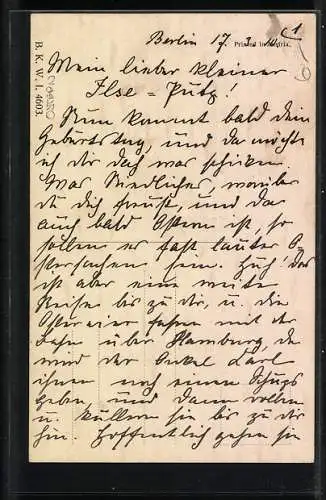 Berlin 17.
Printed in Austria.
1
B. K. W. I. 4603.
Mein lieber kleiner
Ilse = Putz!
Nun kommt bald dein
Geburtstag, und da möchte
ich dir doch was schicken.
Was Niedliches, worüber
du dich freust, und da
auch bald Ostern ist, so
sollen es fast lauter O-
stersachen sein. Huh! das
ist aber eine weite
Reise bis zu dir, u. die
Ostereier fahren mit der
Bahn über Hamburg, da
wird der Onkel Karl
ihnen noch einen Schups
geben, und dann rollen
u. kullern sie bis zu dir
hin. Hoffentlich gehen sie